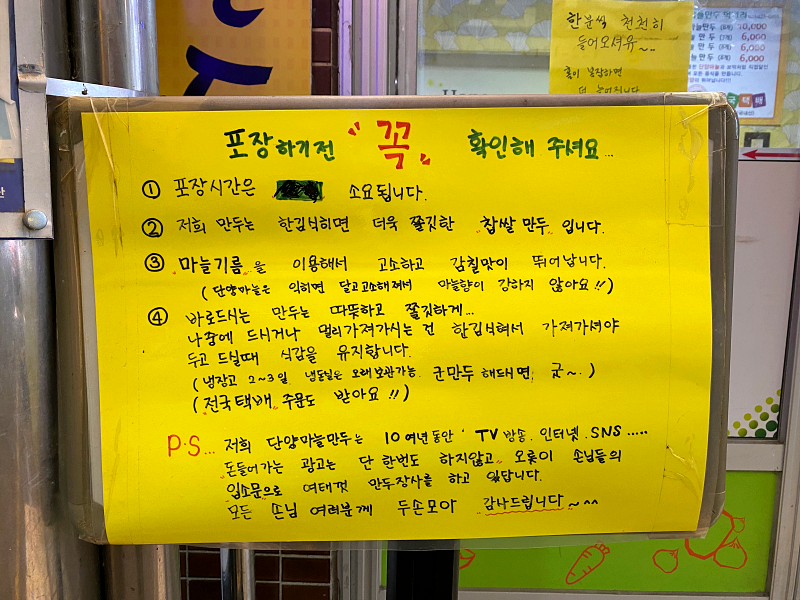 한분씩 천천히
들어오셔유~..
10,000
6,000
6,000
6,000
택배
포장하기전 "꼭" 확인해 주셔요...
① 포장시간은 소요됩니다.
② 저희 만두는 한김식히면 더욱 쫄깃한 "찹쌀만두" 입니다.
③ "마늘기름"을 이용해서 고소하고 감칠맛이 뛰어납니다.
(단양마늘은 익히면 달고고소해져서 마늘향이 강하지 않아요!!)
④ 바로드시는 만두는 따뜻하고 쫄깃하게...
나중에 드시거나 멀리가져가시는 건 한김식혀서 가져가셔야
두고 드실때 식감을 유지합니다.
(냉장고 2~3일, 냉동실은 오래보관가능. 군만두 해드시면, 굿~.)
(전국택배 주문도 받아요!!)
P.S... 저희 단양마늘만두는 10여년동안 'TV방송. 인터넷.SNS.....
돈들어가는 광고는 단 한번도 하지않고" 오롯이 손님들의
입소문으로 여태껏 만두장사를 하고 있답니다.
모든 손님 여러분께 두손모아 감사드립니다~^^